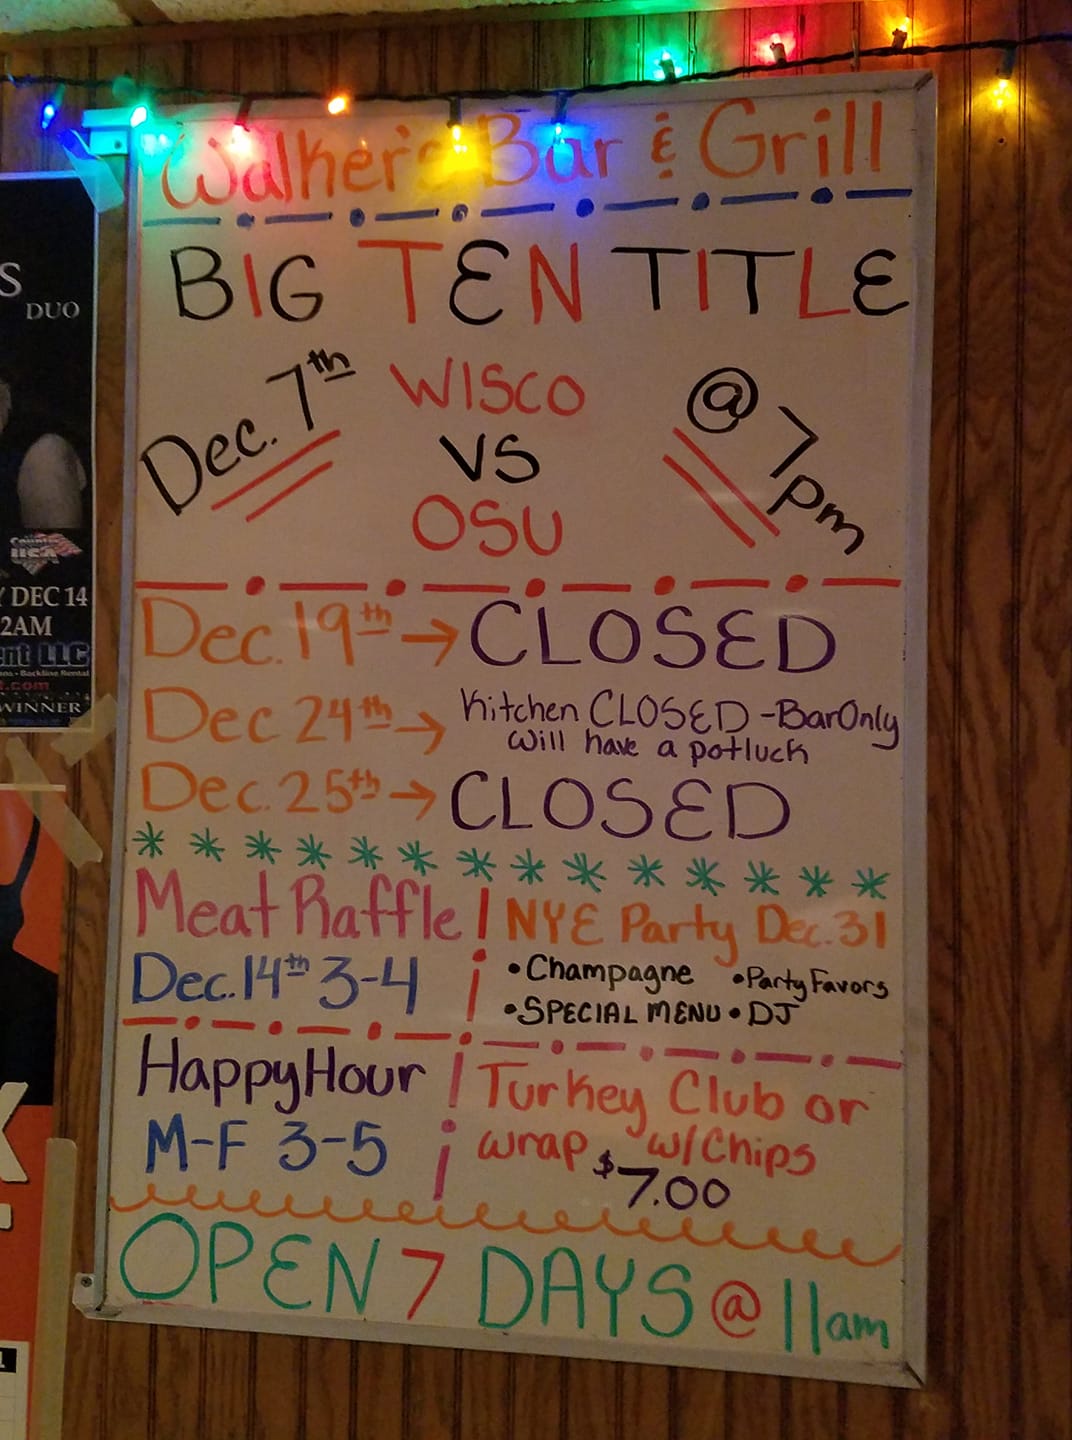 Walker's Bar & Grill
BIG TEN TITLE
Dec. 7th
WISCO
VS
OSU
@ 7pm
Dec. 19th → CLOSED
Dec 24th → Kitchen CLOSED - Bar Only
Will have a potluck
Dec. 25th → CLOSED
Meat Raffle
Dec. 14th 3-4
NYE Party Dec. 31
• Champagne • Party Favors
• SPECIAL MENU • DJ
Happy Hour
M-F 3-5
Turkey Club or
wrap w/Chips
$7.00
OPEN 7 DAYS @ 11am
S
DUO
DEC 14
2AM
LLC
Backline Rental
.com
WINNER